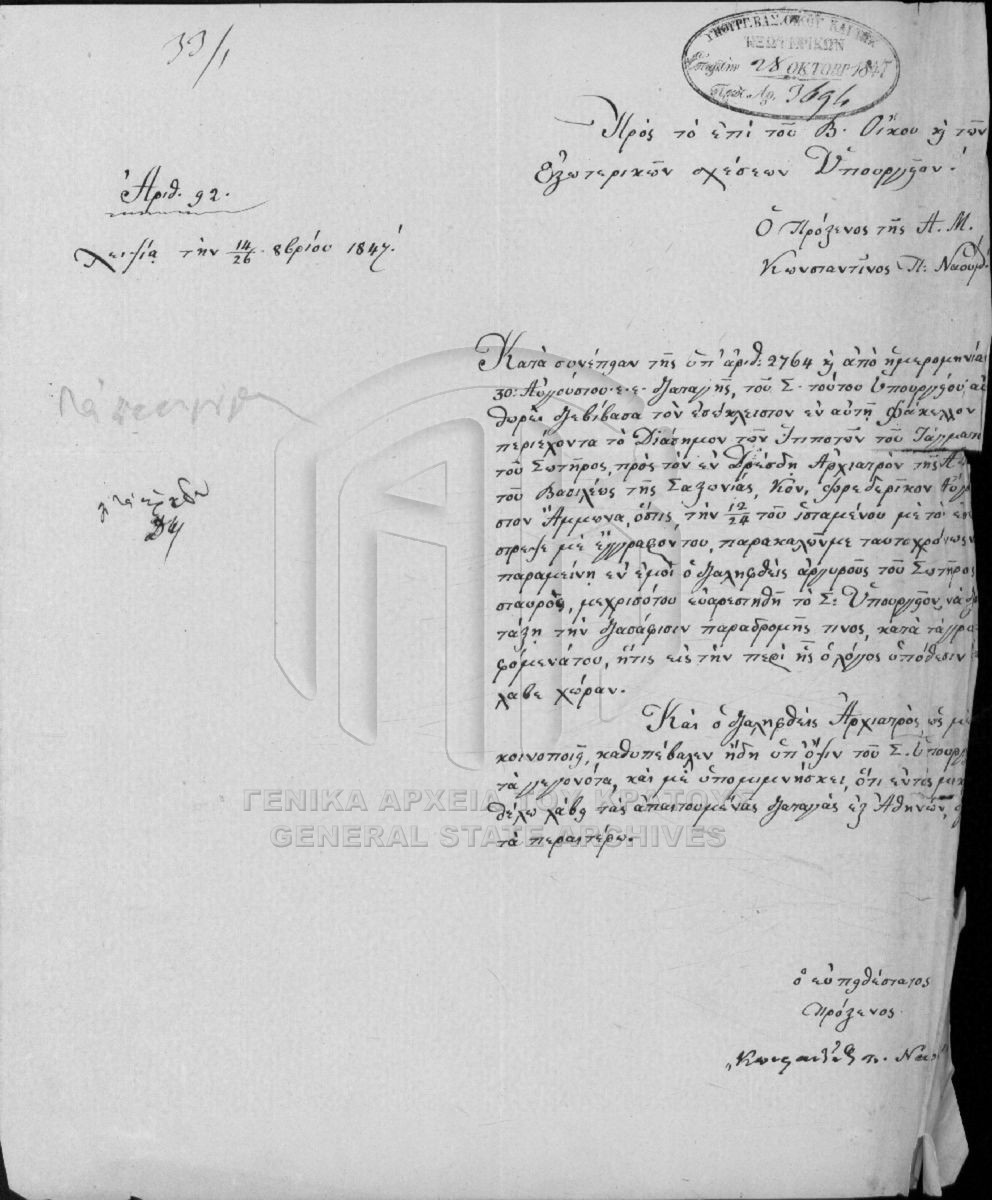 33/1
ΥΠΟΥΡΓ. ΒΑΣ. ΟΙΚΟΥ ΚΑΙ ΤΩΝ
ΕΞΩΤΕΡΙΚΩΝ
28 ΟΚΤΩΒΡ 1847
Πρωτ. Αρ. 3694
Πρὸς τὸ ἐπὶ τοῦ Β. Οἴκου κ τῶν
Ἐξωτερικῶν σχέσεων Ὑπουργεῖον.
Ἀριθ. 92.
Λειψίᾳ τὴν 14/26 8βρίου 1847.
Ὁ Πρόξενος τῆς Α. Μ.
Κωνσταντῖνος Π. Ναούμ
Κατὰ συνέπειαν τῆς ὑπ' ἀριθ: 2764 κ ἀπὸ ἡμερομηνία
30. Αὐγούστου ἐ. ἔ. διαταγῆς, τοῦ Σ. τούτου Ὑπουργείου, αὐ
θωρεὶ διεβίβασα τὸν ἐσώκλειστον ἐν αὐτῇ φάκελλον
περιέχοντα τὸ Διάσημον τῶν Ἱπποτῶν τοῦ Τάγματ
τοῦ Σωτῆρος, πρὸς τὸν ἐν Δρέσδῃ Ἀρχιατρὸν τῆς Α.
τοῦ Βασιλέως τῆς Σαξωνίας, Κον. Φρεδερῖκον Αὐγου
στον Ἄμμωνα, ὅστις, τὴν 12/24 τοῦ ἱσταμένου μὲ τὸ ἐπέ
στρεψε μὲ ἔγγραφόν του, παρακαλοῦν με ταυτοχρόνως ν
παραμείνῃ ἐν ἐμοὶ ὁ διαληφθεὶς ἀργυροῦς τοῦ Σωτῆρος
σταυρὸς, μεχρισότου εὐαρεστηθῇ τὸ Σ: Ὑπουργεῖον, νὰ δια
τάξῃ τὴν διασάφισιν παραδρομῆς τινος, κατὰ τὰ γρα
φόμενάτου, ἥτις εἰς τὴν περὶ ἧς ὁ λόγος ὑπόθεσιν ἔ
λαβε χώραν.
Καὶ ὁ διαληφθεὶς Ἀρχιατρὸς ὡς μὲ
κοινοποιεῖ, καθυπέβαλεν ἤδη ὑπ' ὄψιν τοῦ Σ. Ὑπουργ
τὰ γεγονότα, καὶ μὲ ὑπομιμνήσκει, ὅτι ἐντὸς μικ
θέλω λάβῃ τὰς ἀπαιτουμένας διαταγὰς ἐξ Ἀθηνῶν,
τὰ περαιτέρω.
ὁ εὐπειθέστατος
Πρόξενος
Κωνσταντῖνος Π. Ναού
ΓΕΝΙΚΑ ΑΡΧΕΙΑ ΤΟΥ ΚΡΑΤΟΥΣ
GENERAL STATE ARCHIVES